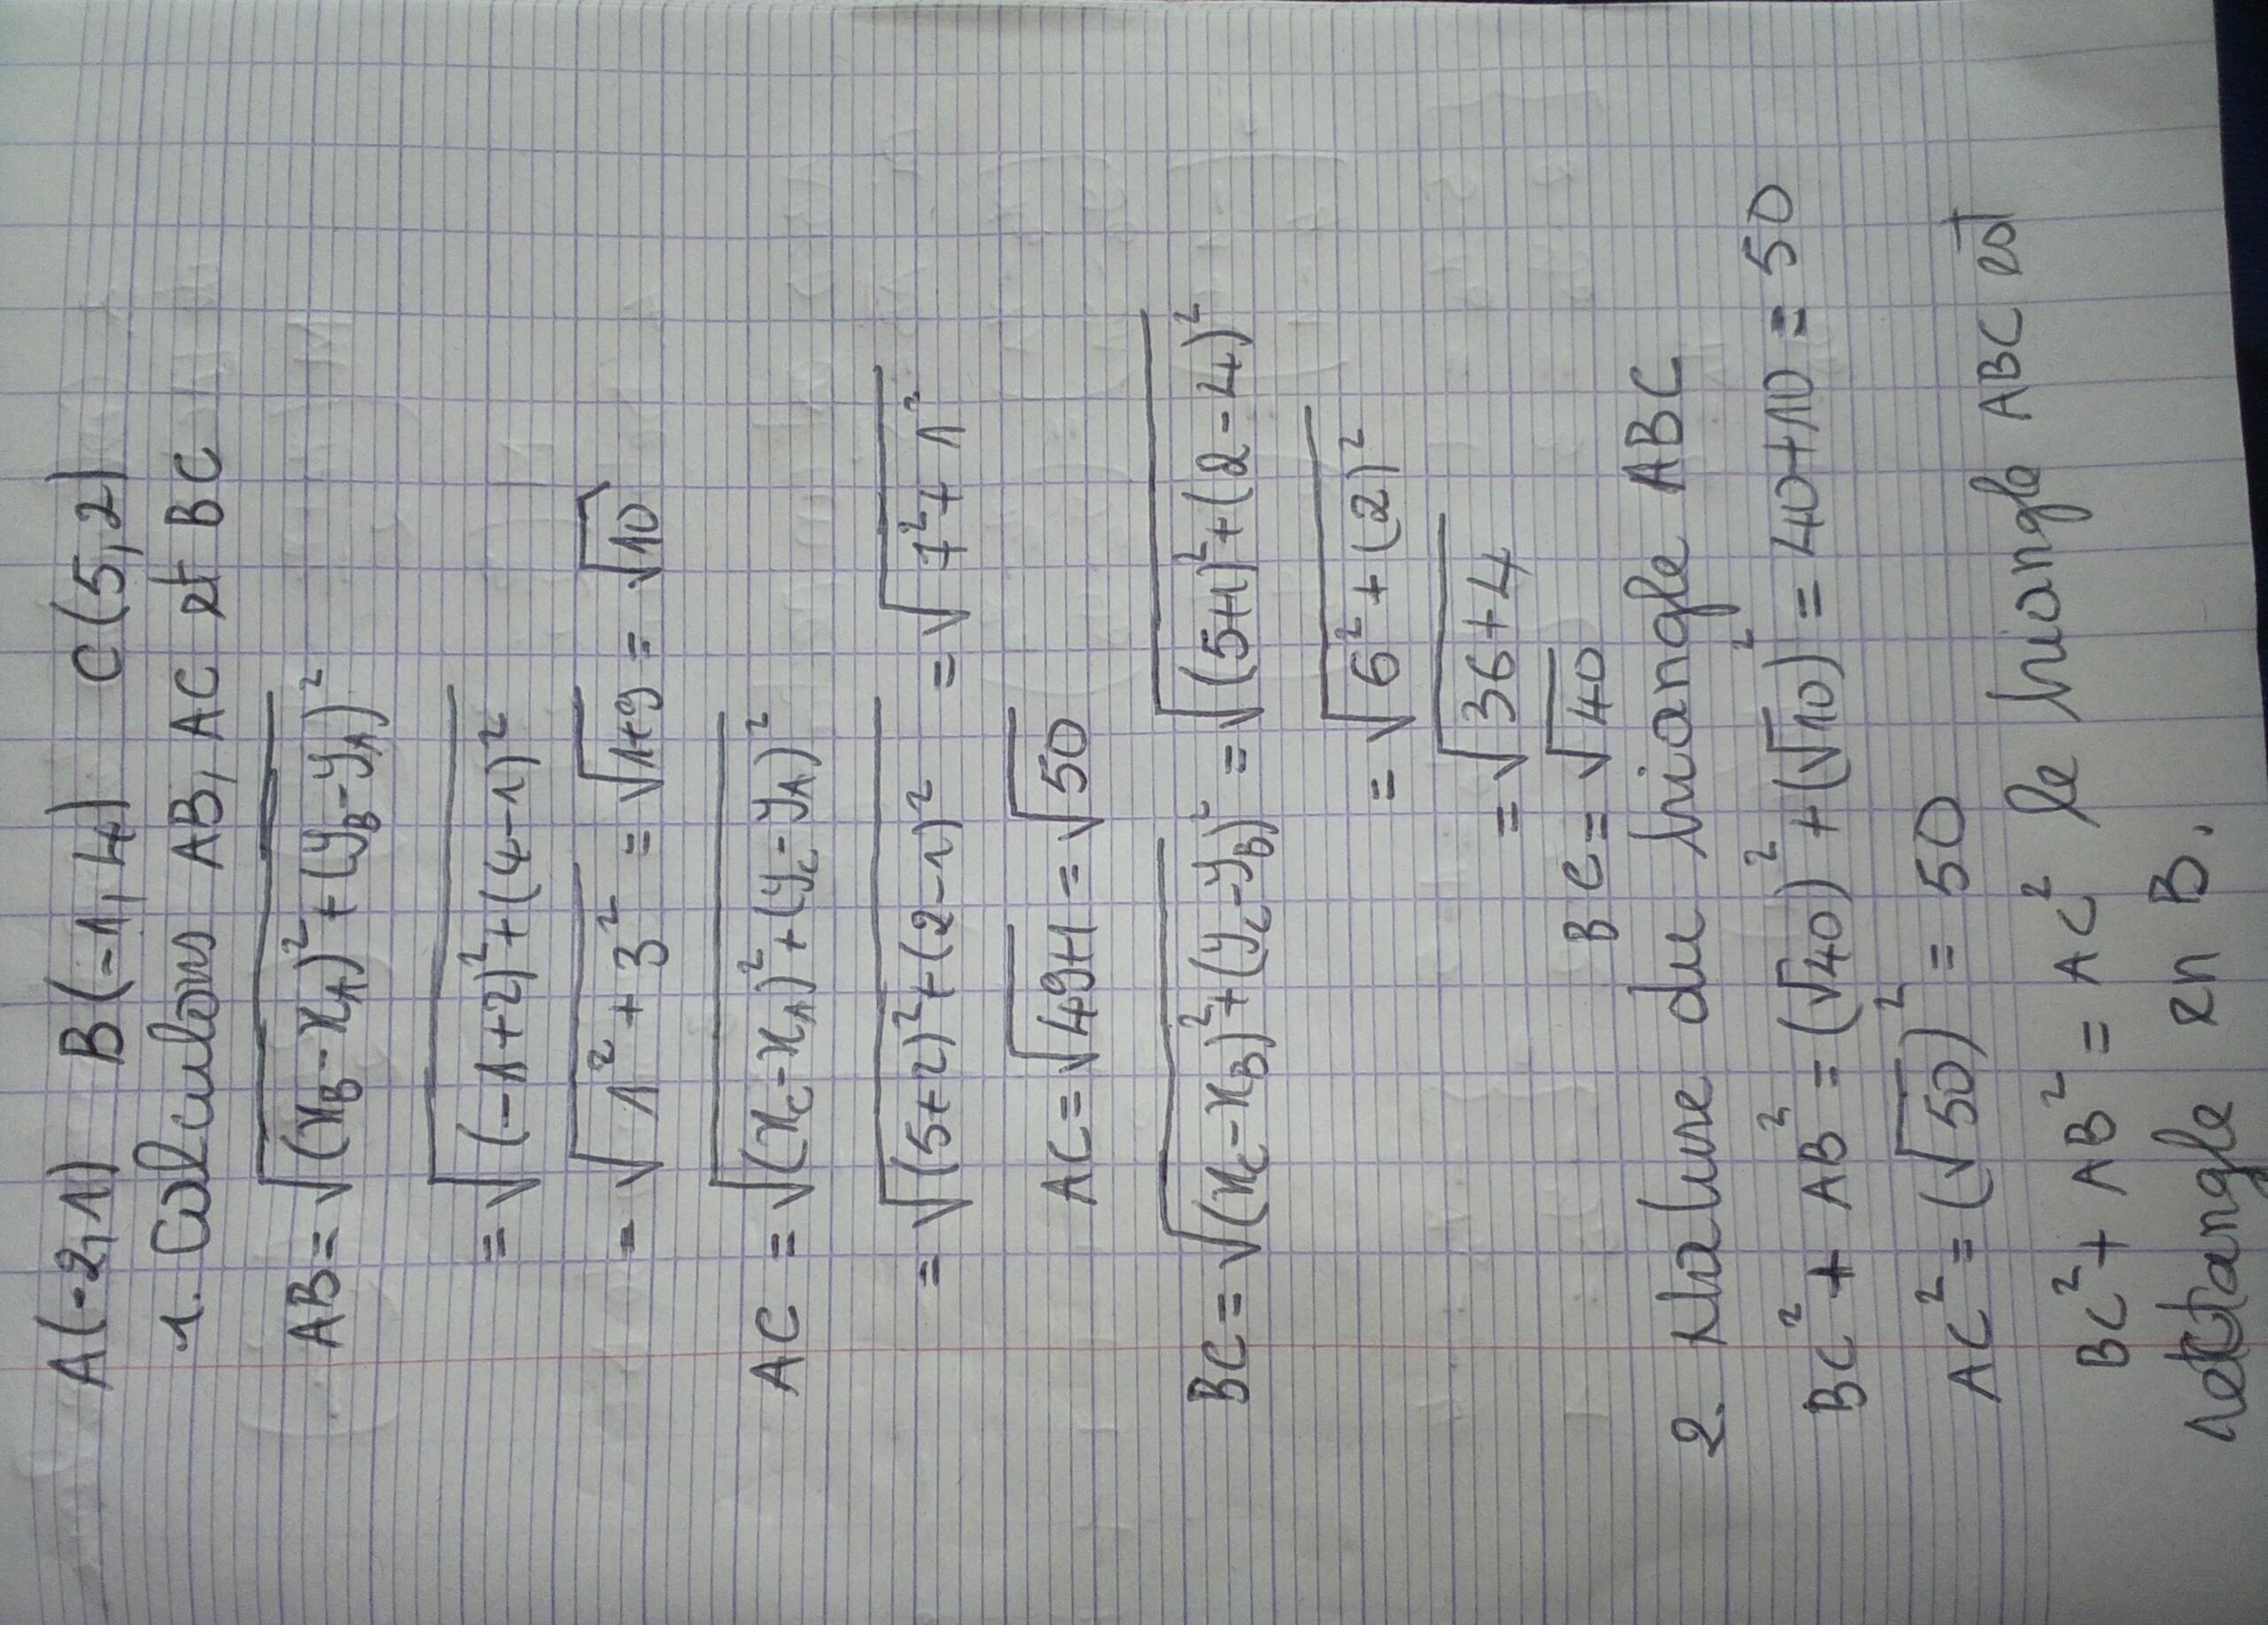 A(-2,1) B(-1,4) C(5,2)
1. Calculons AB, AC et BC
AB = √(xB - xA)² + (yB - yA)²
= √(-1+2)² + (4-1)²
= √1² + 3² = √1+9 = √10
AC = √(xC - xA)² + (yC - yA)²
= √(5+2)² + (2-1)² = √7² + 1²
AC = √49+1 = √50
BC = √(xC - xB)² + (yC - yB)² = √(5+1)² + (2-4)²
= √6² + (2)²
= √36+4
BC = √40
2. Nature du triangle ABC
BC² + AB² = (√40)² + (√10)² = 40+10 = 50
AC² = (√50)² = 50
BC² + AB² = AC² le triangle ABC est
rectangle en B.